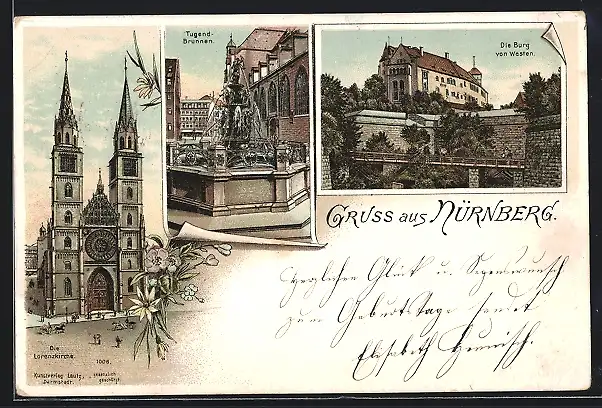 Tugend-
Brunnen.
Die Burg
von Westen.
GRUSS aus NÜRNBERG.
Herzlichen Glück u. Segenswunsch
zum Geburts Tage sendet
Elisabeth
Die
Lorenzkirche.
1006.
Kunstverlag Lautz,
Darmstadt.
gesetzlich
geschützt.